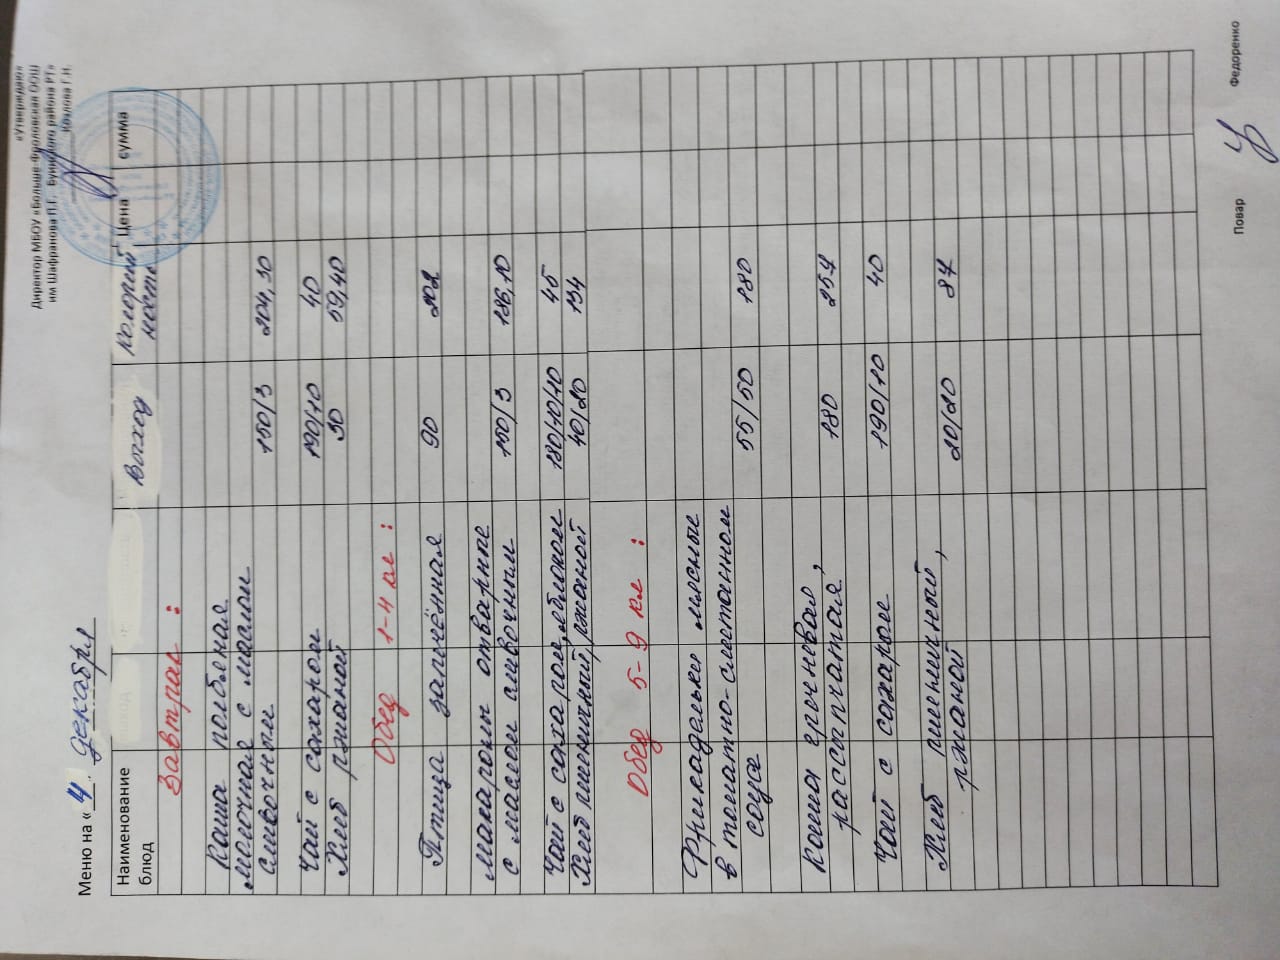 «Утверждаю»
Директор МБОУ «Больше-Фроловская ООШ
им Шафранова П.Г. Буинского района РТ»
Козлова Г.Н.
Меню на « 4 » декабря
Наименование блюд Выход Колорий ность Цена сумма
Завтрак :
Каша полбеная
молочная с маслом
сливочным 150/3 204,30
Чай с сахаром 190/10 40
Хлеб ржаной 30 59,40
Обед 1-4 кл :
Птица запечённая 90 202
макароны отварные
с маслом сливочным 150/3 186,10
Чай с сахаром, яблоком 180/10/10 45
Хлеб пшеничный, ржаной 40/20 134
Обед 5-9 кл :
Фрикадельки мясные
в томатно-сметанном
соусе 55/50 180
Каша гречневая,
рассыпчатая, 180 257
Чай с сахаром 190/10 40
Хлеб пшеничный,
ржаной 20/20 87
Повар Федоренко